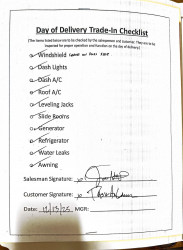 Day of Delivery Trade-In Checklist
(The items listed below are to be checked by the salesman and customer. They are to be
inspected for proper operation and function on the day of delivery.)
Windshield
Dash Lights
Dash A/C
Roof A/C
Leveling Jacks
Slide Rooms
Generator
Refrigerator
Water Leaks
Awning
Salesman Signature:
Customer Signature:
Date: MGR: